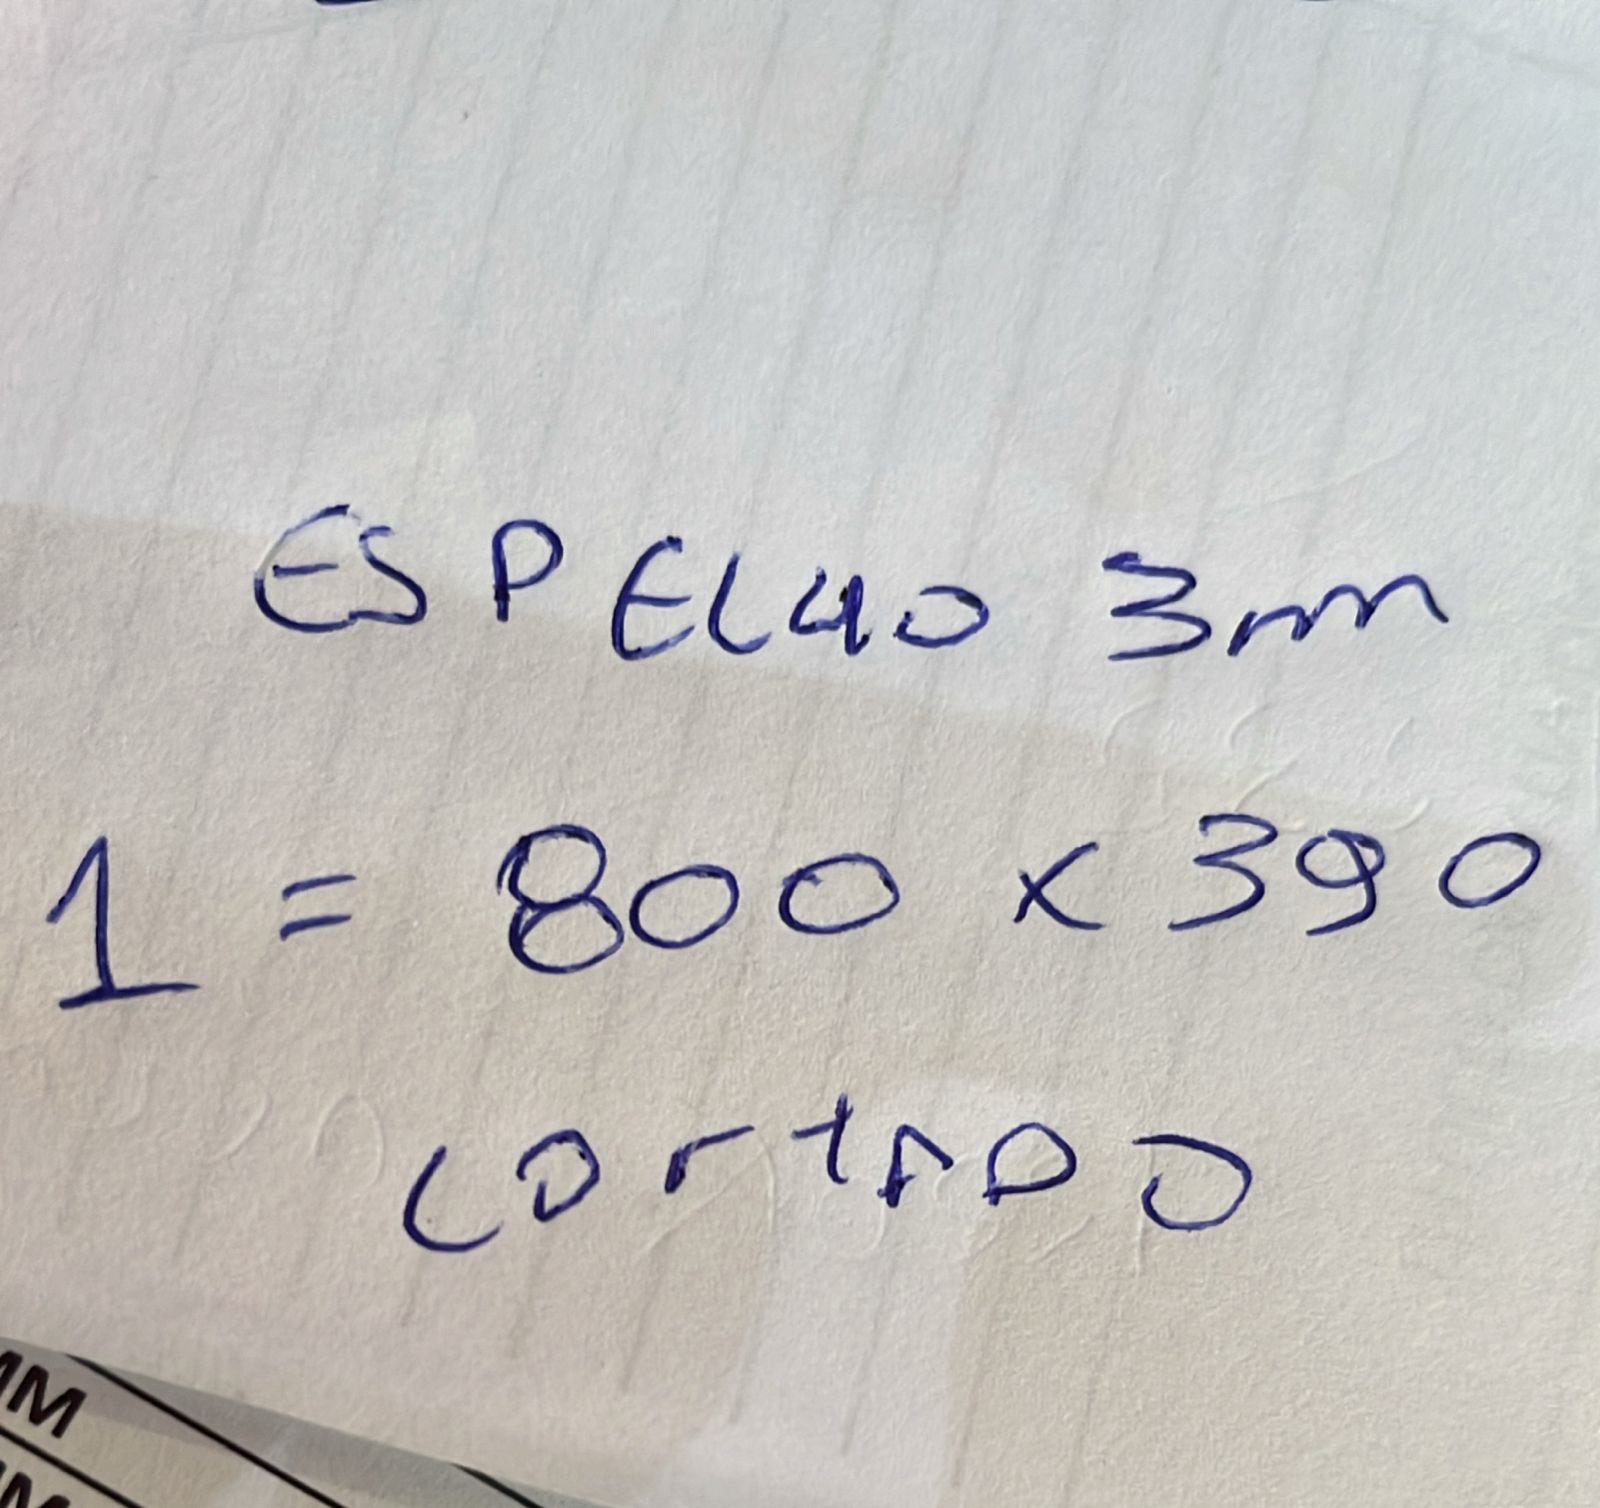 ESPELHO 3mm
1 = 800 x 390
cortADO
MM